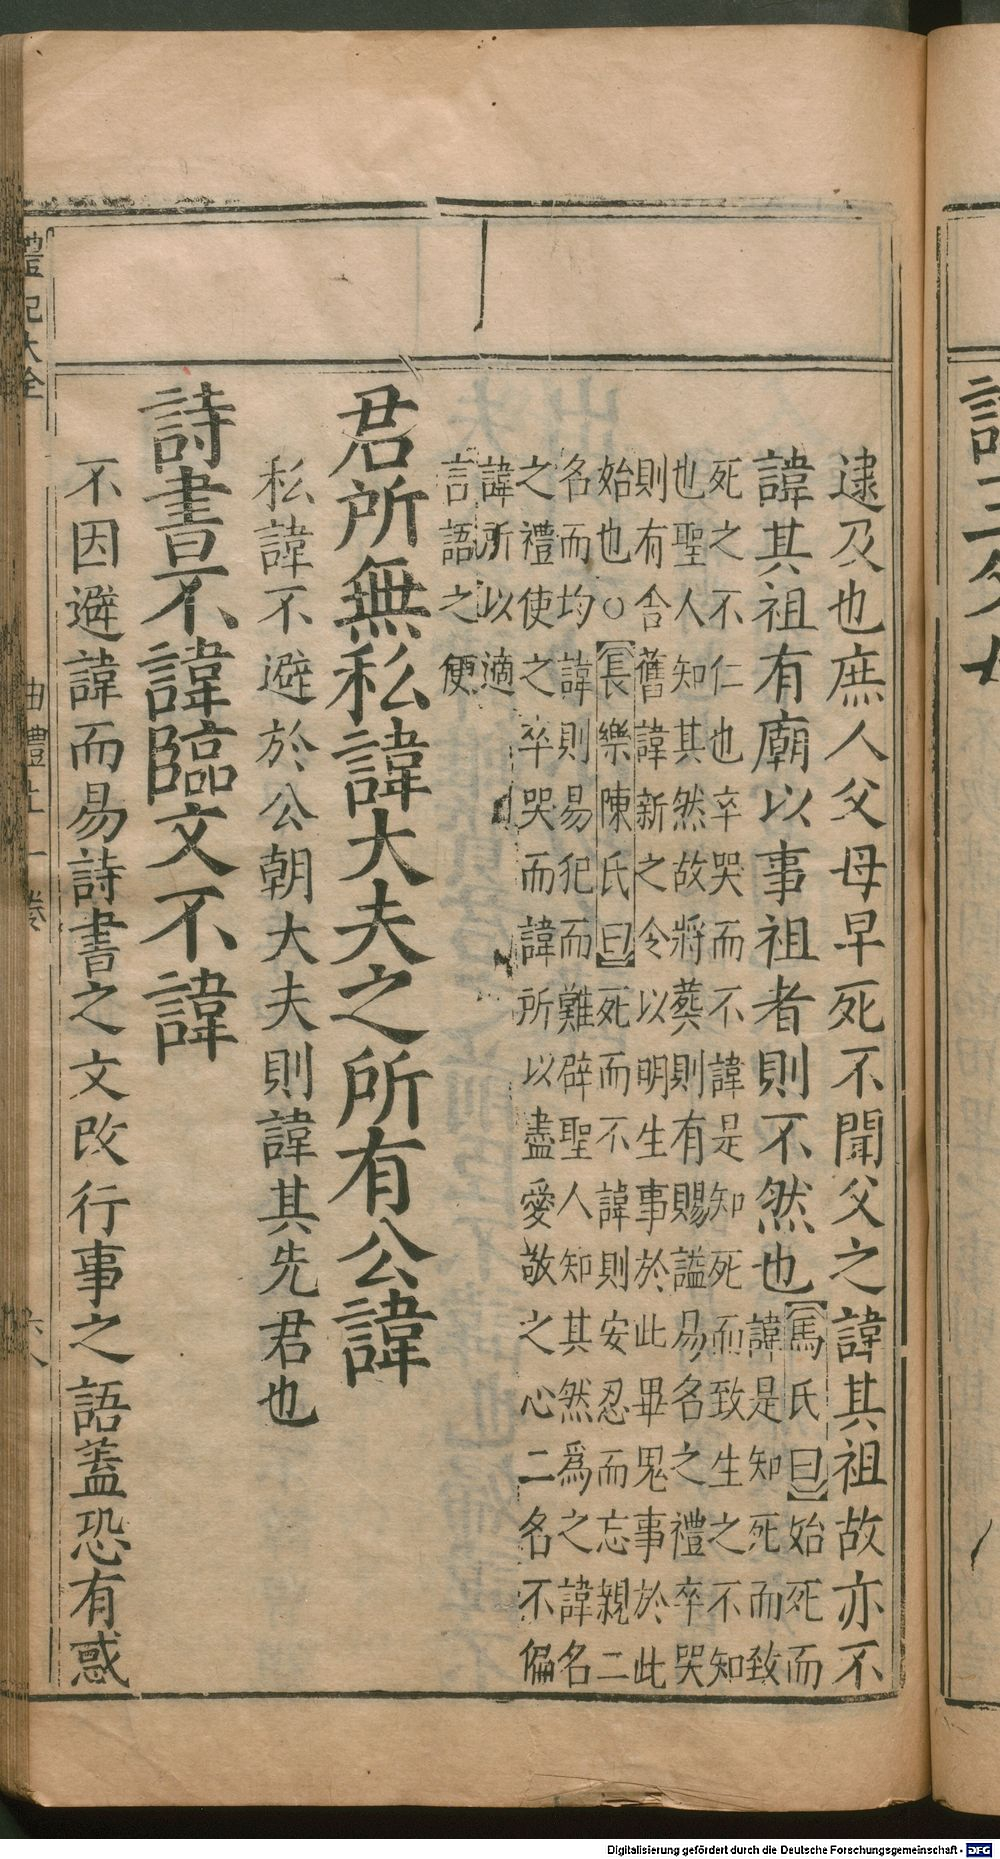 逮及也庶人父母早死不聞父之諱其祖故亦不
諱其祖有廟以事祖者則不然也【馬氏曰】始死而
諱是知死而致
死之不仁也卒哭而不諱是知死而致生之不知
也聖人知其然故將葬則有賜謚易名之禮卒哭
則有舍舊諱新之令以明生事於此畢鬼事於此
始也○【長樂陳氏曰】死而不諱則安忍而忘親二
名而均諱則易犯而難辟聖人知其然爲之諱名
之禮使之卒哭而諱所以盡愛敬之心二名不偏
諱所以適
言語之便
君所無私諱大夫之所有公諱
私諱不避於公朝大夫則諱其先君也
詩書不諱臨文不諱
不因避諱而易詩書之文改行事之語蓋恐有惑
禮記大全 曲禮上 一卷 六八
Digitalisierung gefördert durch die Deutsche Forschungsgemeinschaft - DFG